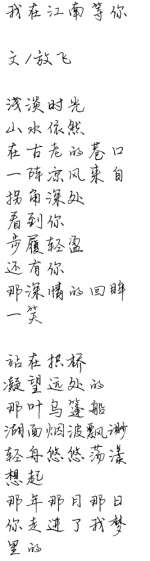 我在江南等你
文/放飞
浅淡时光
山水依然
在古老的巷口
一阵凉风来自
拐角深处
看到你
步履轻盈
还有你
那深情的回眸
一笑
站在拱桥
凝望远处的
那叶乌篷船
湖面烟波飘渺
轻舟悠悠荡漾
想起
那年那月那日
你走进了我梦
里的